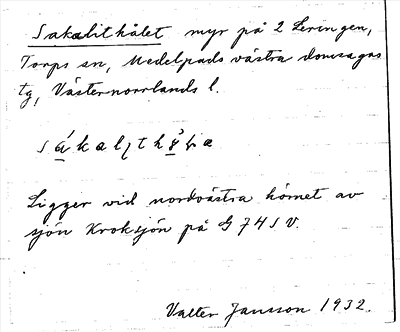 Sakalithålet myr på 2 Leringen,
Torps sn, Medelpads västra domsagas
tg, Västernorrlands l.
Ligger vid nordvästra hörnet av
sjön Kroksjön på G 74 S V.
Valter Jansson 1932.